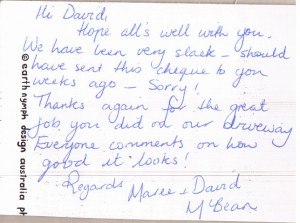 Hi David,
Hope all's well with you.
We have been very slack - should
have sent this cheque to you
weeks ago - Sorry!
Thanks again for the great
job you did on our driveway
Everyone comments on how
good it looks!
Regards
& David
McBean
earth nymph design australia